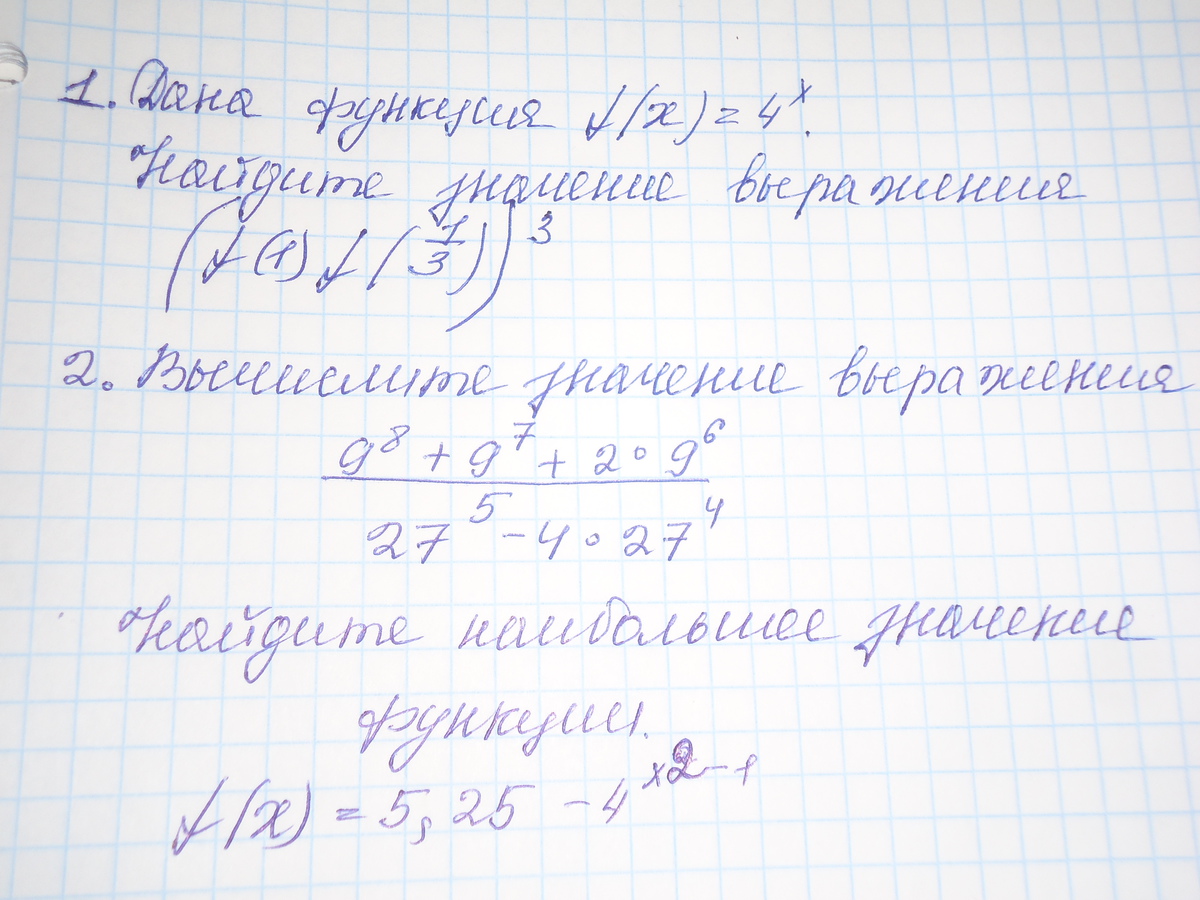 1. Дана функция f(x) = 4^x.
Найдите значение выражения
(f(1) f(1/3))^3
2. Вычислите значение выражения
9^8 + 9^7 + 2 · 9^6
27^5 - 4 · 27^4
Найдите наибольшее значение
функции.
f(x) = 5,25 - 4^(x^2 - 1)